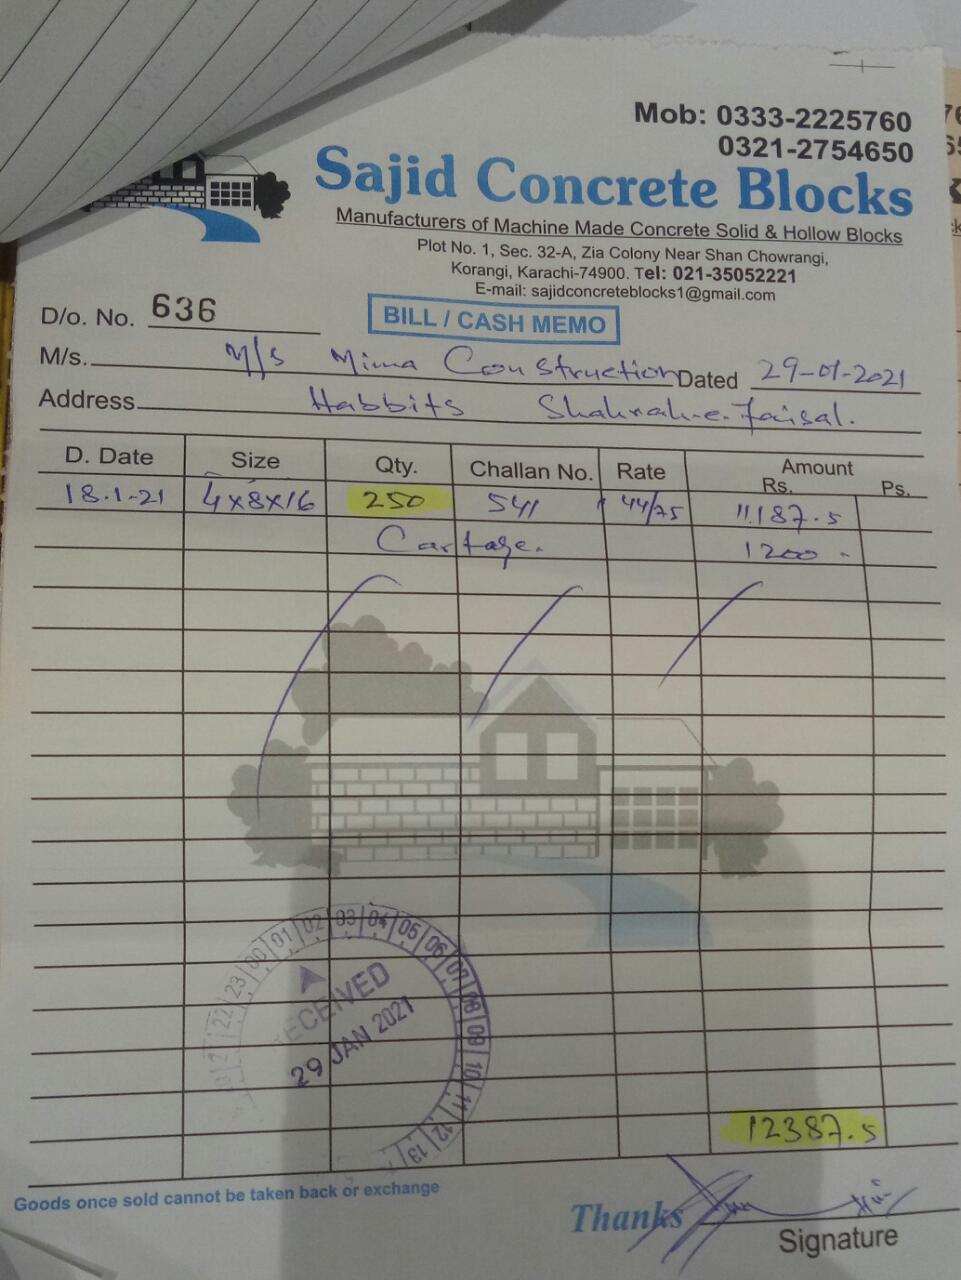 Mob: 0333-2225760
0321-2754650
Sajid Concrete Blocks
Manufacturers of Machine Made Concrete Solid & Hollow Blocks
Plot No. 1, Sec. 32-A, Zia Colony Near Shan Chowrangi,
Korangi, Karachi-74900. Tel: 021-35052221
E-mail: sajidconcreteblocks1@gmail.com
D/o. No. 636
BILL / CASH MEMO
M/s. M/s Mima Construction Dated 29-01-2021
Address Habbits Shahrah-e-Faisal.
D. Date Size Qty. Challan No. Rate Amount
Rs. Ps.
18.1-21 4x8x16 250 541 44/75 11187.5
Cartage. 1200 -
00 01 02 03 04 05 06 07 08 09 10 11 12 13 22 23
ECEIVED
29 JAN 2021
12387.5
Goods once sold cannot be taken back or exchange
Thanks
Signature